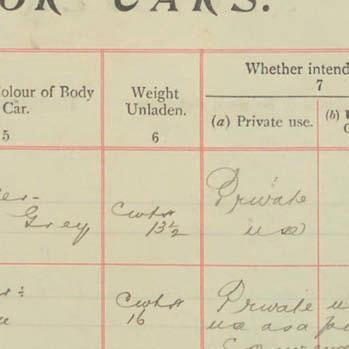 OR CARS.
Colour of Body
Car.
5
Weight
Unladen.
6
Whether intend
7
(a) Private use.
(b)
Grey
Cwts
13½
Private
use
Cwts
16
Private u
use as a p